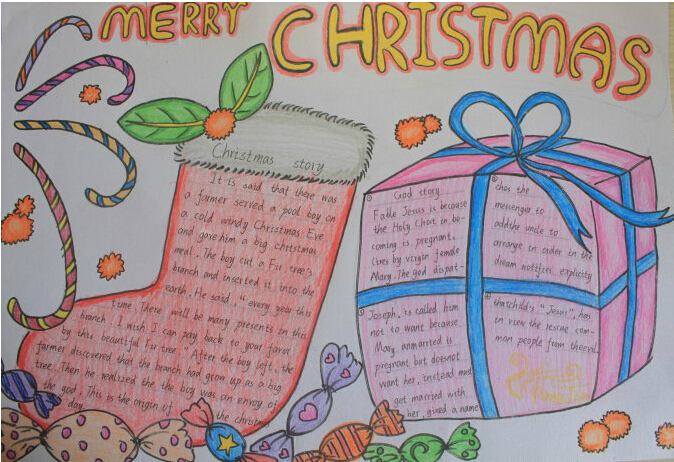 MERRY CHRISTMAS
Christmas story
It is said that there was
a farmer served a pool boy on
a cold windy Christmas Eve
and gave him a big christmas
meal. The boy cut a Fir tree's
branch and inserted it into the
earth. He said, "every year this
time. There will be many presents in this
branch, I wish I can pay back to your favor
by this beautiful Fir tree." After the boy left, the
farmer discovered that the branch had grow up as a big
tree. Then he realized the the boy was an envoy of
the god. This is the origin of the christmas
day.
① God story
Fable Jesus is because
the Holy Ghost in be-
coming is pregnant.
lines by virgin female
Mary. The god dispat-
② ches the
messenger to
addthe smile to
arrange in order in the
dream notifies explicity
③ Joseph, is called him
not to want because
Mary anmarried is
pregnant but doesnot
want her, instead must
get married with
her, gived a name
④ thatchild's "Jesus", has
in view the rescue com-
mon people from theevil.